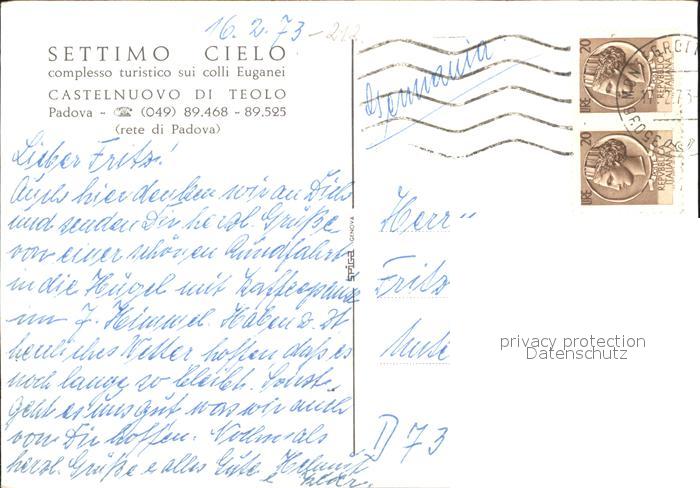 16.2.73-212
SETTIMO CIELO
complesso turistico sui colli Euganei
CASTELNUOVO DI TEOLO
Padova - ☎ (049) 89.468 - 89.525
(rete di Padova)
Germania
20
LIRE
REPUBBLICA
ITALIANA
20
LIRE
REPUBBLICA
ITALIANA
Lieber Fritz!
hier denken wir an Dich
und senden Dir herzl. Grüße
von einer schönen Rundfahrt
in die Hügel mit Kaffeepause
im 7. Himmel. Haben z. Zt
herrliches Wetter hoffen daß es
noch lange so bleibt. Sonst
geht es uns gut was wir auch
von Dir hoffen. Nochmals
herzl. Grüße e alles Gute Helmut
e
SPIGA GENOVA
Herrn
Fritz
D 73
privacy protection
Datenschutz